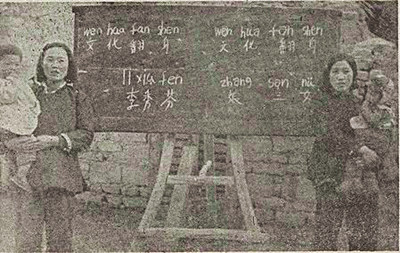 wen hua fan shen
文化翻身
li xiù fen
李秀芬
wen hua fān shen
文化翻身
zhang sān nǚ
张三女